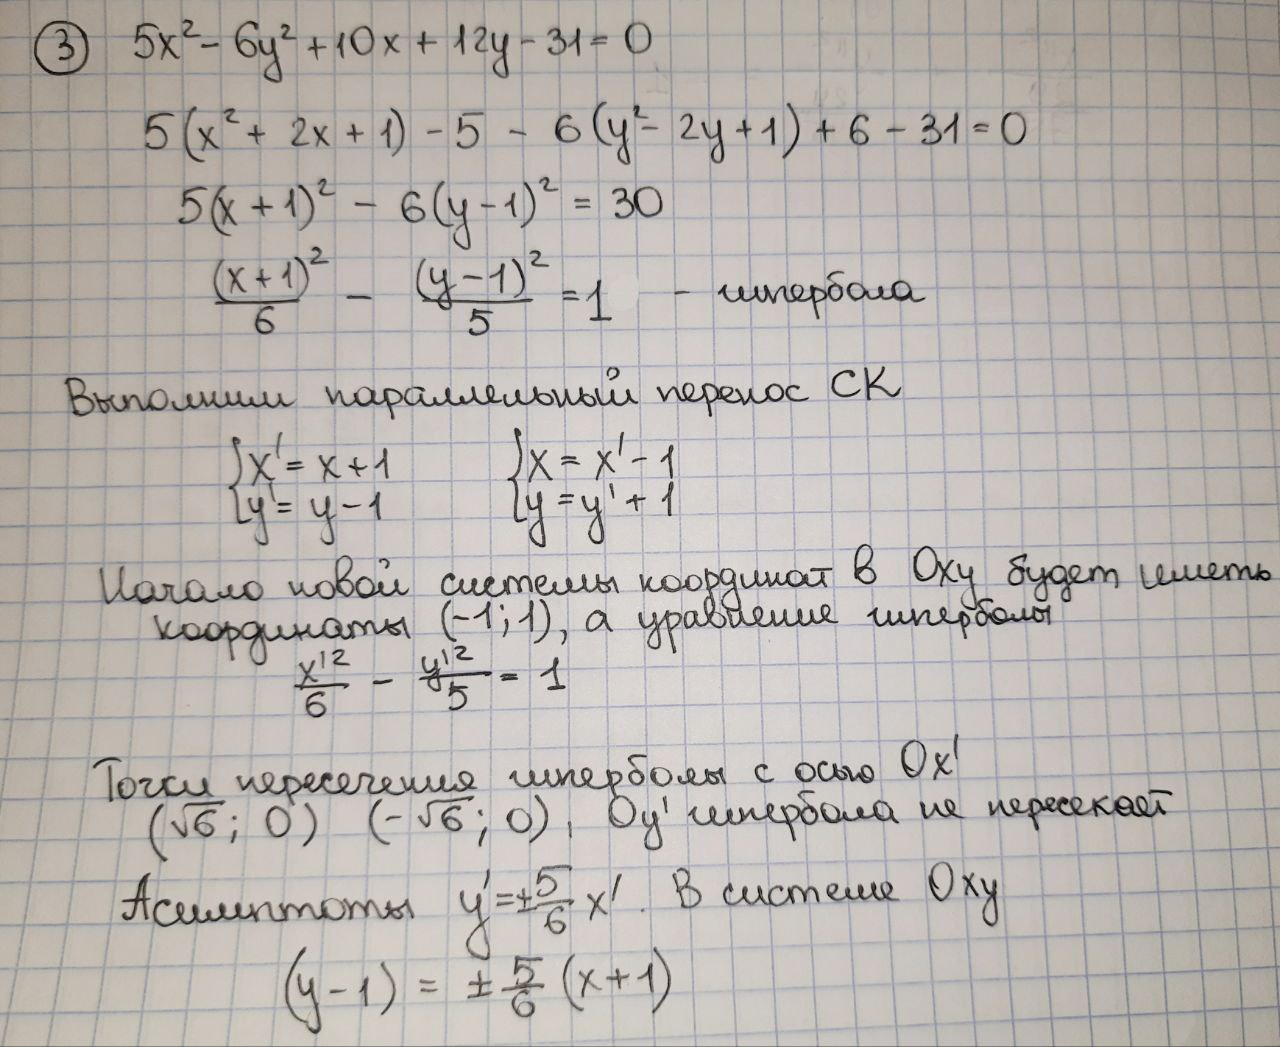 ③ 5x² - 6y² + 10x + 12y - 31 = 0
5(x² + 2x + 1) - 5 - 6(y² - 2y + 1) + 6 - 31 = 0
5(x + 1)² - 6(y - 1)² = 30
(x + 1)²/6 - (y - 1)²/5 = 1 - гипербола
Выполним параллельный перенос СК
{x' = x + 1 {x = x' - 1
{y' = y - 1 {y = y' + 1
Начало новой системы координат в Oxy будет иметь
координаты (-1; 1), а уравнение гиперболы
x'²/6 - y'²/5 = 1
Точки пересечения гиперболы с осью Ox'
(√6; 0) (-√6; 0), Oy' гипербола не пересекает
Асимптоты y' = ± 5/6 x'. В системе Oxy
(y - 1) = ± 5/6 (x + 1)